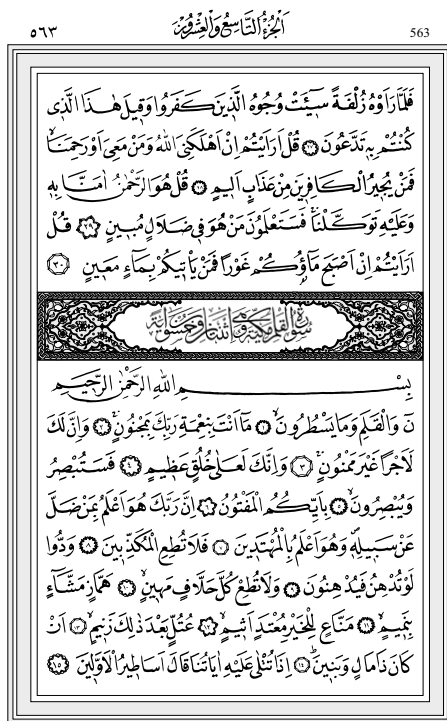 ٥٦٣ اَلْجُزْءُ التَّاسِعُ وَالْعِشْرُونَ 563
فَلَمَّا رَاَوْهُ زُلْفَةً سٖٓيـَٔتْ وُجُوهُ الَّذٖينَ كَفَرُوا وَقٖيلَ هٰذَا الَّذٖى
كُنْتُمْ بِهٖ تَدَّعُونَ ﴿٢٧﴾ قُلْ اَرَاَيْتُمْ اِنْ اَهْلَكَنِىَ اللّٰهُ وَمَنْ مَعِىَ اَوْ رَحِمَنَاۙ
فَمَنْ يُجٖيرُ الْكَافِرٖينَ مِنْ عَذَابٍ اَلٖيمٍ ﴿٢٨﴾ قُلْ هُوَ الرَّحْمٰنُ اٰمَنَّا بِهٖ
وَعَلَيْهِ تَوَكَّلْنَاۚ فَسَتَعْلَمُونَ مَنْ هُوَ فٖى ضَلَالٍ مُبٖينٍ ﴿٢٩﴾ قُلْ
اَرَاَيْتُمْ اِنْ اَصْبَحَ مَٓاؤُ۬كُمْ غَوْرًا فَمَنْ يَأْتٖيكُمْ بِمَٓاءٍ مَعٖينٍ ﴿٣٠﴾
سورة القلم مكية وهي اثنتان وخمسون آية
بِسْمِ اللّٰهِ الرَّحْمٰنِ الرَّحٖيمِ
نٓ وَالْقَلَمِ وَمَا يَسْطُرُونَۙ ﴿١﴾ مَٓا اَنْتَ بِنِعْمَةِ رَبِّكَ بِمَجْنُونٍۚ ﴿٢﴾ وَاِنَّ لَكَ
لَاَجْرًا غَيْرَ مَمْنُونٍۚ ﴿٣﴾ وَاِنَّكَ لَعَلٰى خُلُقٍ عَظٖيمٍ ﴿٤﴾ فَسَتُبْصِرُ
وَيُبْصِرُونَۙ ﴿٥﴾ بِاَيِّكُمُ الْمَفْتُونُ ﴿٦﴾ اِنَّ رَبَّكَ هُوَ اَعْلَمُ بِمَنْ ضَلَّ
عَنْ سَبٖيلِهٖ وَهُوَ اَعْلَمُ بِالْمُهْتَدٖينَ ﴿٧﴾ فَلَا تُطِعِ الْمُكَذِّبٖينَ ﴿٨﴾ وَدُّوا
لَوْ تُدْهِنُ فَيُدْهِنُونَ ﴿٩﴾ وَلَا تُطِعْ كُلَّ حَلَّافٍ مَهٖينٍۙ ﴿١٠﴾ هَمَّازٍ مَشَّٓاءٍ
بِنَمٖيمٍۙ ﴿١١﴾ مَنَّاعٍ لِلْخَيْرِ مُعْتَدٍ اَثٖيمٍۙ ﴿١٢﴾ عُتُلٍّ بَعْدَ ذٰلِكَ زَنٖيمٍۙ ﴿١٣﴾ اَنْ
كَانَ ذَا مَالٍ وَبَنٖينَۜ ﴿١٤﴾ اِذَا تُتْلٰى عَلَيْهِ اٰيَاتُنَا قَالَ اَسَاطٖيرُ الْاَوَّلٖينَ ﴿١٥﴾